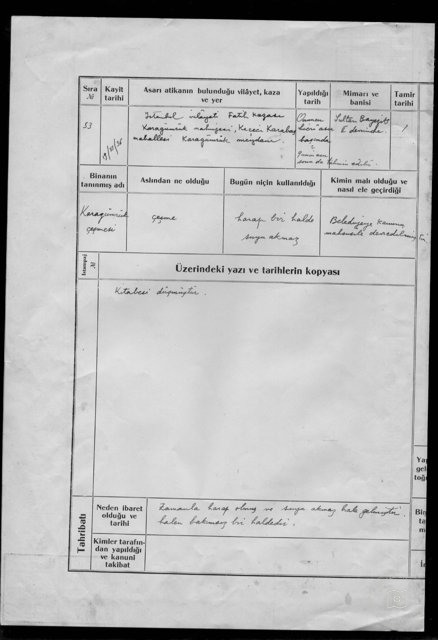 Sıra
№
Kayıt
tarihi
Asarı atikanın bulunduğu vilâyet, kaza
ve yer
Yapıldığı
tarih
Mimarı ve
banisi
Tamir
tarihi
53
İstanbul vilâyet Fatih kazası
Karagümrük nahiyesi, Keçeci Karabaş
mahallesi Karagümrük meydanı.
başında
Sultan Bayezit
II devrinde
Binanın
tanınmış adı
Aslından ne olduğu
Bugün niçin kullanıldığı
Kimin malı olduğu ve
nasıl ele geçirdiği
Karagümrük
çeşmesi
çeşme
harap bir halde
suyu akmaz
Belediyeye kanunu
mahsusile devredilmiştir
№
Üzerindeki yazı ve tarihlerin kopyası
Kitabesi düşmüştür.
Tahribatı
Neden ibaret
olduğu ve
tarihi
Zamanla harap olmuş ve suyu akmaz hale gelmiştir
halen bakımsız bir haldedir.
Kimler tarafın-
dan yapıldığı
ve kanuni
takibat